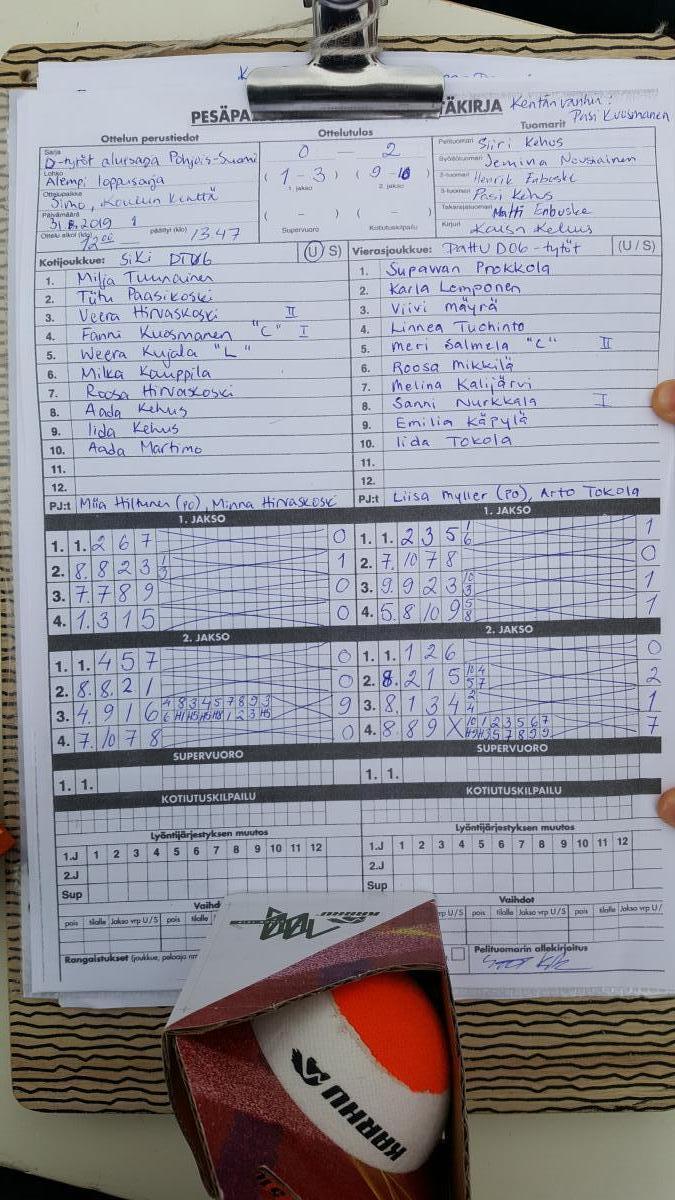 PESÄPA TÄKIRJA Kentän vanhin:
Pasi Kuosmanen
Ottelun perustiedot Ottelutulos Tuomarit
Sarja D-tytöt aluesarja Pohjois-Suomi
Lohko Alempi loppusarja
Ottelupaikka Simo, Koulun kenttä
Päivämäärä 31.8.2019
Ottelu alkoi (klo) 12 00 päättyi (klo) 13 47
0 — 2
( 1 - 3 ) ( 9 - 10 )
1. jakso 2. jakso
( - ) ( - )
Supervuoro Kotiutuskilpailu
Pelituomari Siiri Kehus
Syöttötuomari Jemina Nousiainen
2-tuomari Henrik Enbuske
3-tuomari Pasi Kehus
Takarajatuomari Matti Enbuske
Kirjuri Kaisa Kehus
Kotijoukkue: SiKi DT06 (U / S)
1. Milja Tuunainen
2. Tytu Paasikoski
3. Veera Hirvaskoski II
4. Fanni Kuosmanen "C" I
5. Weera Kujala "L"
6. Milka Kauppila
7. Roosa Hirvaskoski
8. Aada Kehus
9. Iida Kehus
10. Aada Martimo
11.
12.
PJ:t Miia Hiltunen (po), Minna Hirvaskoski
Vierasjoukkue: PattU D06-tytöt (U / S)
1. Supawan Prokkola
2. Karla Lemponen
3. Viivi Mäyrä
4. Linnea Tuohinto
5. Meri Salmela "C" II
6. Roosa Mikkilä
7. Melina Kalijärvi
8. Sanni Nurkkala I
9. Emilia Käpylä
10. Iida Tokola
11.
12.
PJ:t Liisa Myller (po), Arto Tokola
1. JAKSO
1. 1. 2 6 7 0
2. 8. 8 2 3 1
3. 7. 7 8 9 0
4. 1. 3 1 5 0
2. JAKSO
1. 1. 4 5 7 0
2. 8. 8 2 1 0
3. 4. 9 1 6 9
4. 7. 10 7 8 0
SUPERVUORO
1. 1.
KOTIUTUSKILPAILU
Lyöntijärjestyksen muutos
1.J 1 2 3 4 5 6 7 8 9 10 11 12
2.J
Sup
Vaihd
pois tilalle Jakso vrp U/S pois tilalle
Rangaistukset (joukkue, pelaaja
1. JAKSO
1. 1. 2 3 5 1 6 1
2. 7. 10 7 8 0
3. 9. 9 2 3 10 3 1
4. 5. 8 10 9 5 8 1
2. JAKSO
1. 1. 1 2 6 0
2. 8. 2 1 5 10 4 5 7 2
3. 8. 1 3 4 2 4 1
4. 8. 8 9 X 10 1 2 3 5 6 7 7
SUPERVUORO
1. 1.
KOTIUTUSKILPAILU
Lyöntijärjestyksen muutos
1.J 1 2 3 4 5 6 7 8 9 10 11 12
2.J
Sup
Vaihdot
vrp U/S pois tilalle Jakso vrp U/S pois tilalle Jakso vrp U/
Pelituomarin allekirjoitus
KARHU